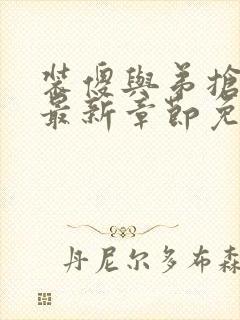 裝傻與弟搶
最新章節免
丹尼尔多布森